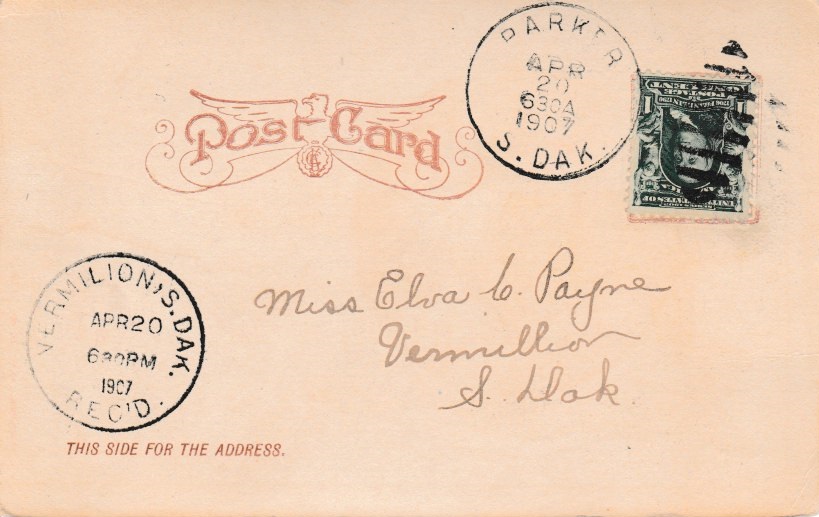 PARKER
APR
20
630A
1907
S. DAK.
Post Card
1 1
VERMILION, S. DAK.
APR 20
630PM
1907
REC'D.
Miss Elva C. Payne
Vermillion
S. Dak.
THIS SIDE FOR THE ADDRESS.